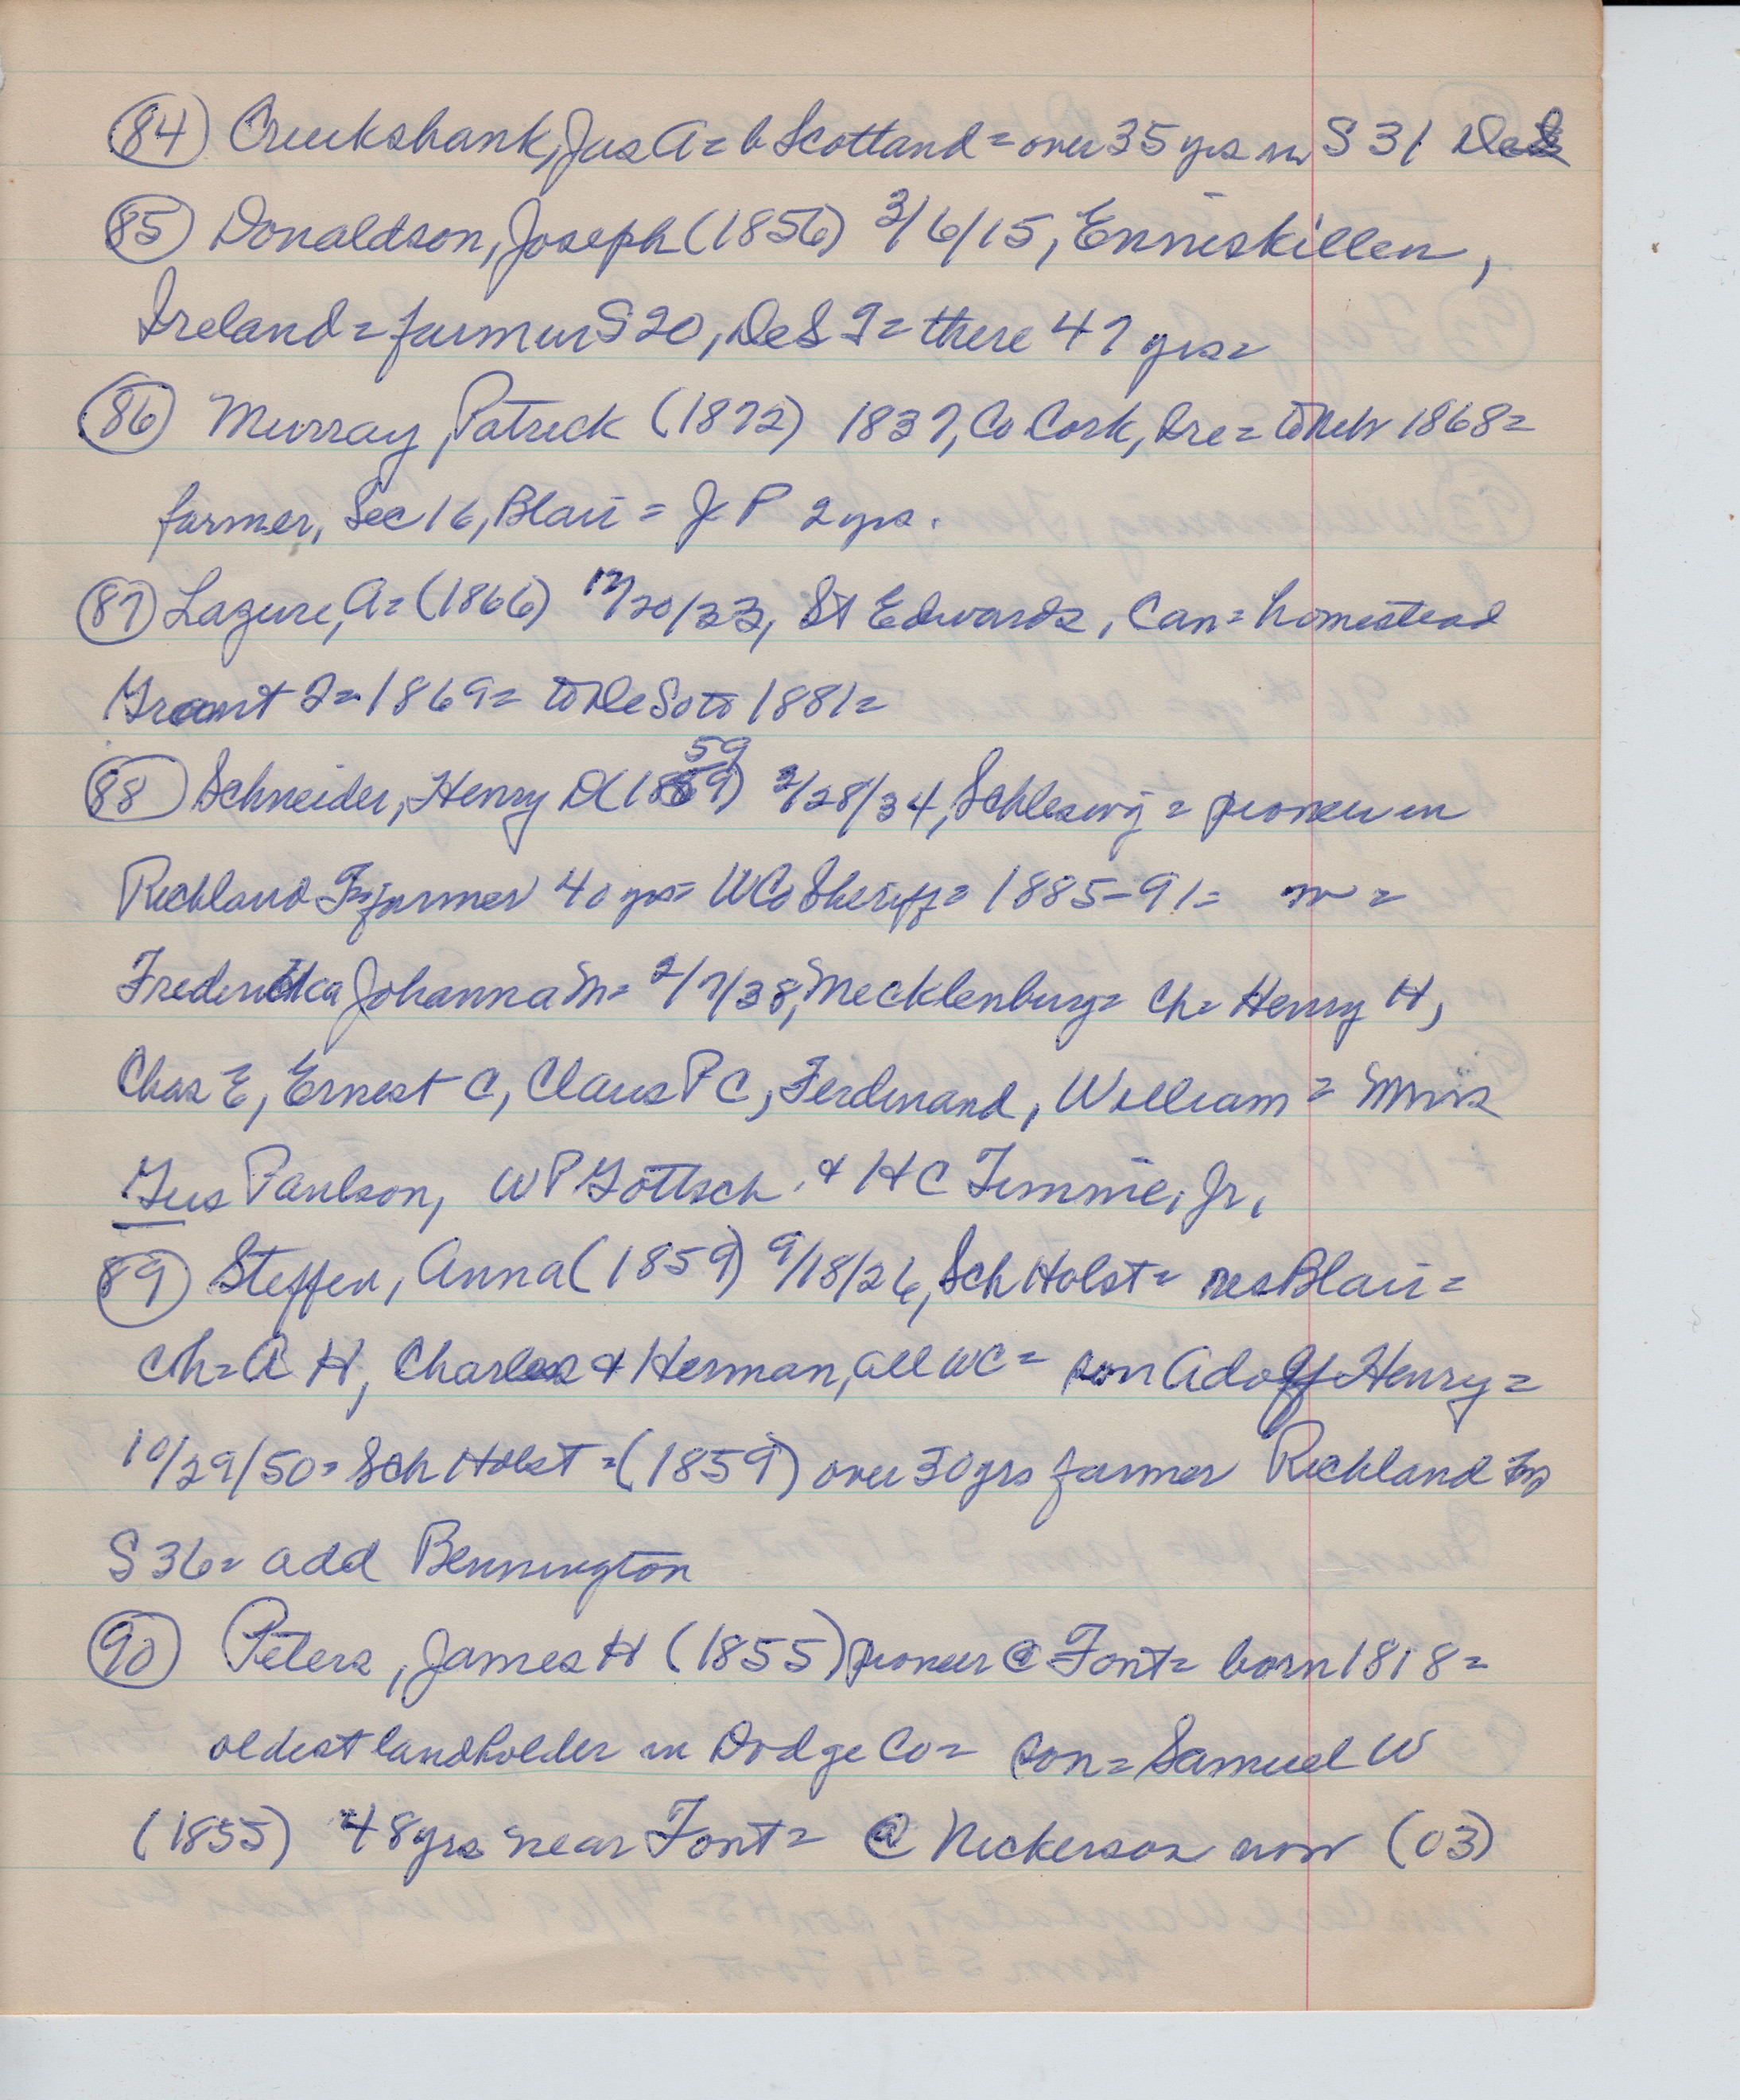 (84) Cruckshank, Jas A = b Scotland = over 35 yrs in S 31 DeS
(85) Donaldson, Joseph (1856) 3/6/15, Enniskillen,
Ireland = farm in S 20, DeS T = there 47 yrs =
(86) Murray, Patrick (1872) 1837, Co Cork, Ire = to Neb 1868 =
farmer, Sec 16, Blair = J P 2 yrs.
(87) Lazure, A = (1866) 12/20/33, St Edwards, Can = homestead
Grant T = 1869 = to DeSoto 1881 =
59
(88) Schneider, Henry D (1869) 2/28/34, Schleswig = pioneer in
Richland T = farmer 40 yrs = WCo Sheriff = 1885-91 = m =
Fredericka Johanna M = 2/7/38, Mecklenburg = Ch = Henry H,
Chas E, Ernest C, Claus P C, Ferdinand, William = Mmes
Gus Paulson, W P Gottsch, & H C Timmie, Jr,
(89) Steffen, Anna (1859) 9/18/26, Sch Holst = res Blair =
ch = A H, Charles & Herman, all WC = son Adolf Henry =
10/29/50 = Sch Holst = (1859) over 30 yrs farmer Richland Tp
S 36 = add Bennington
(90) Peters, James H (1855) pioneer @ Font = born 1818 =
oldest landholder in Dodge Co = son = Samuel W
(1855) 48 yrs near Font = @ Nickerson now (03)